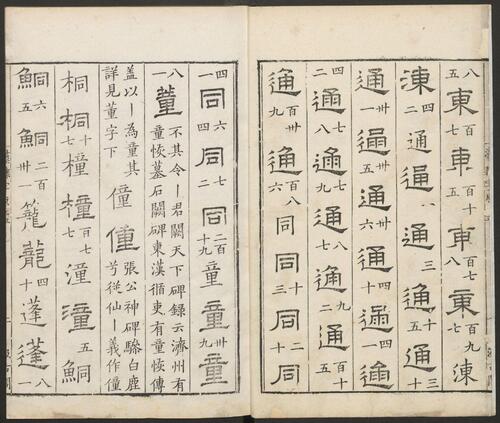 八五東百七東百十五東百七八東百九七涷
涷四二通通八通三通十五通十三
通卅一通卅五通卅六通十四通四一通
四二通七八通七九通八七通九二通百十五
通百卅九通百八六同同十三同二十同
四一同六四同七二同二百十九童卅九童
八一董不其令丨君闕天下碑錄云濟州有
童恢墓石闕碑東漢循吏有童恢傳
蓋以丨為童其
詳見董字下
僮僮張公神碑驂白鹿
兮從仙丨義作僮
桐桐十七橦橦百七七潼潼五鮦
鮦六五鮦二百卅一籠龍四十蓬蓬八一